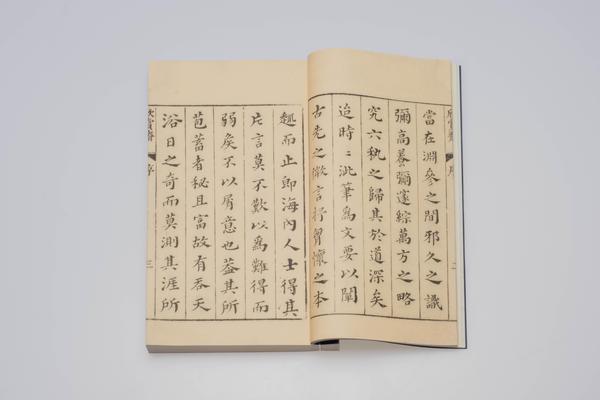 當在淵參之間邪久之識
彌高養彌邃綜萬方之略
究六埶之歸其於道深矣
迨時〻泚筆爲文要以闡
古先之微言抒胷懷之本
趣而止即海內人士得其
片言莫不歎以爲難得而
弱矦不以屑意也葢其所
苞蓄者秘且富故有吞天
浴日之奇而莫測其涯所
欣賞齋 序 三